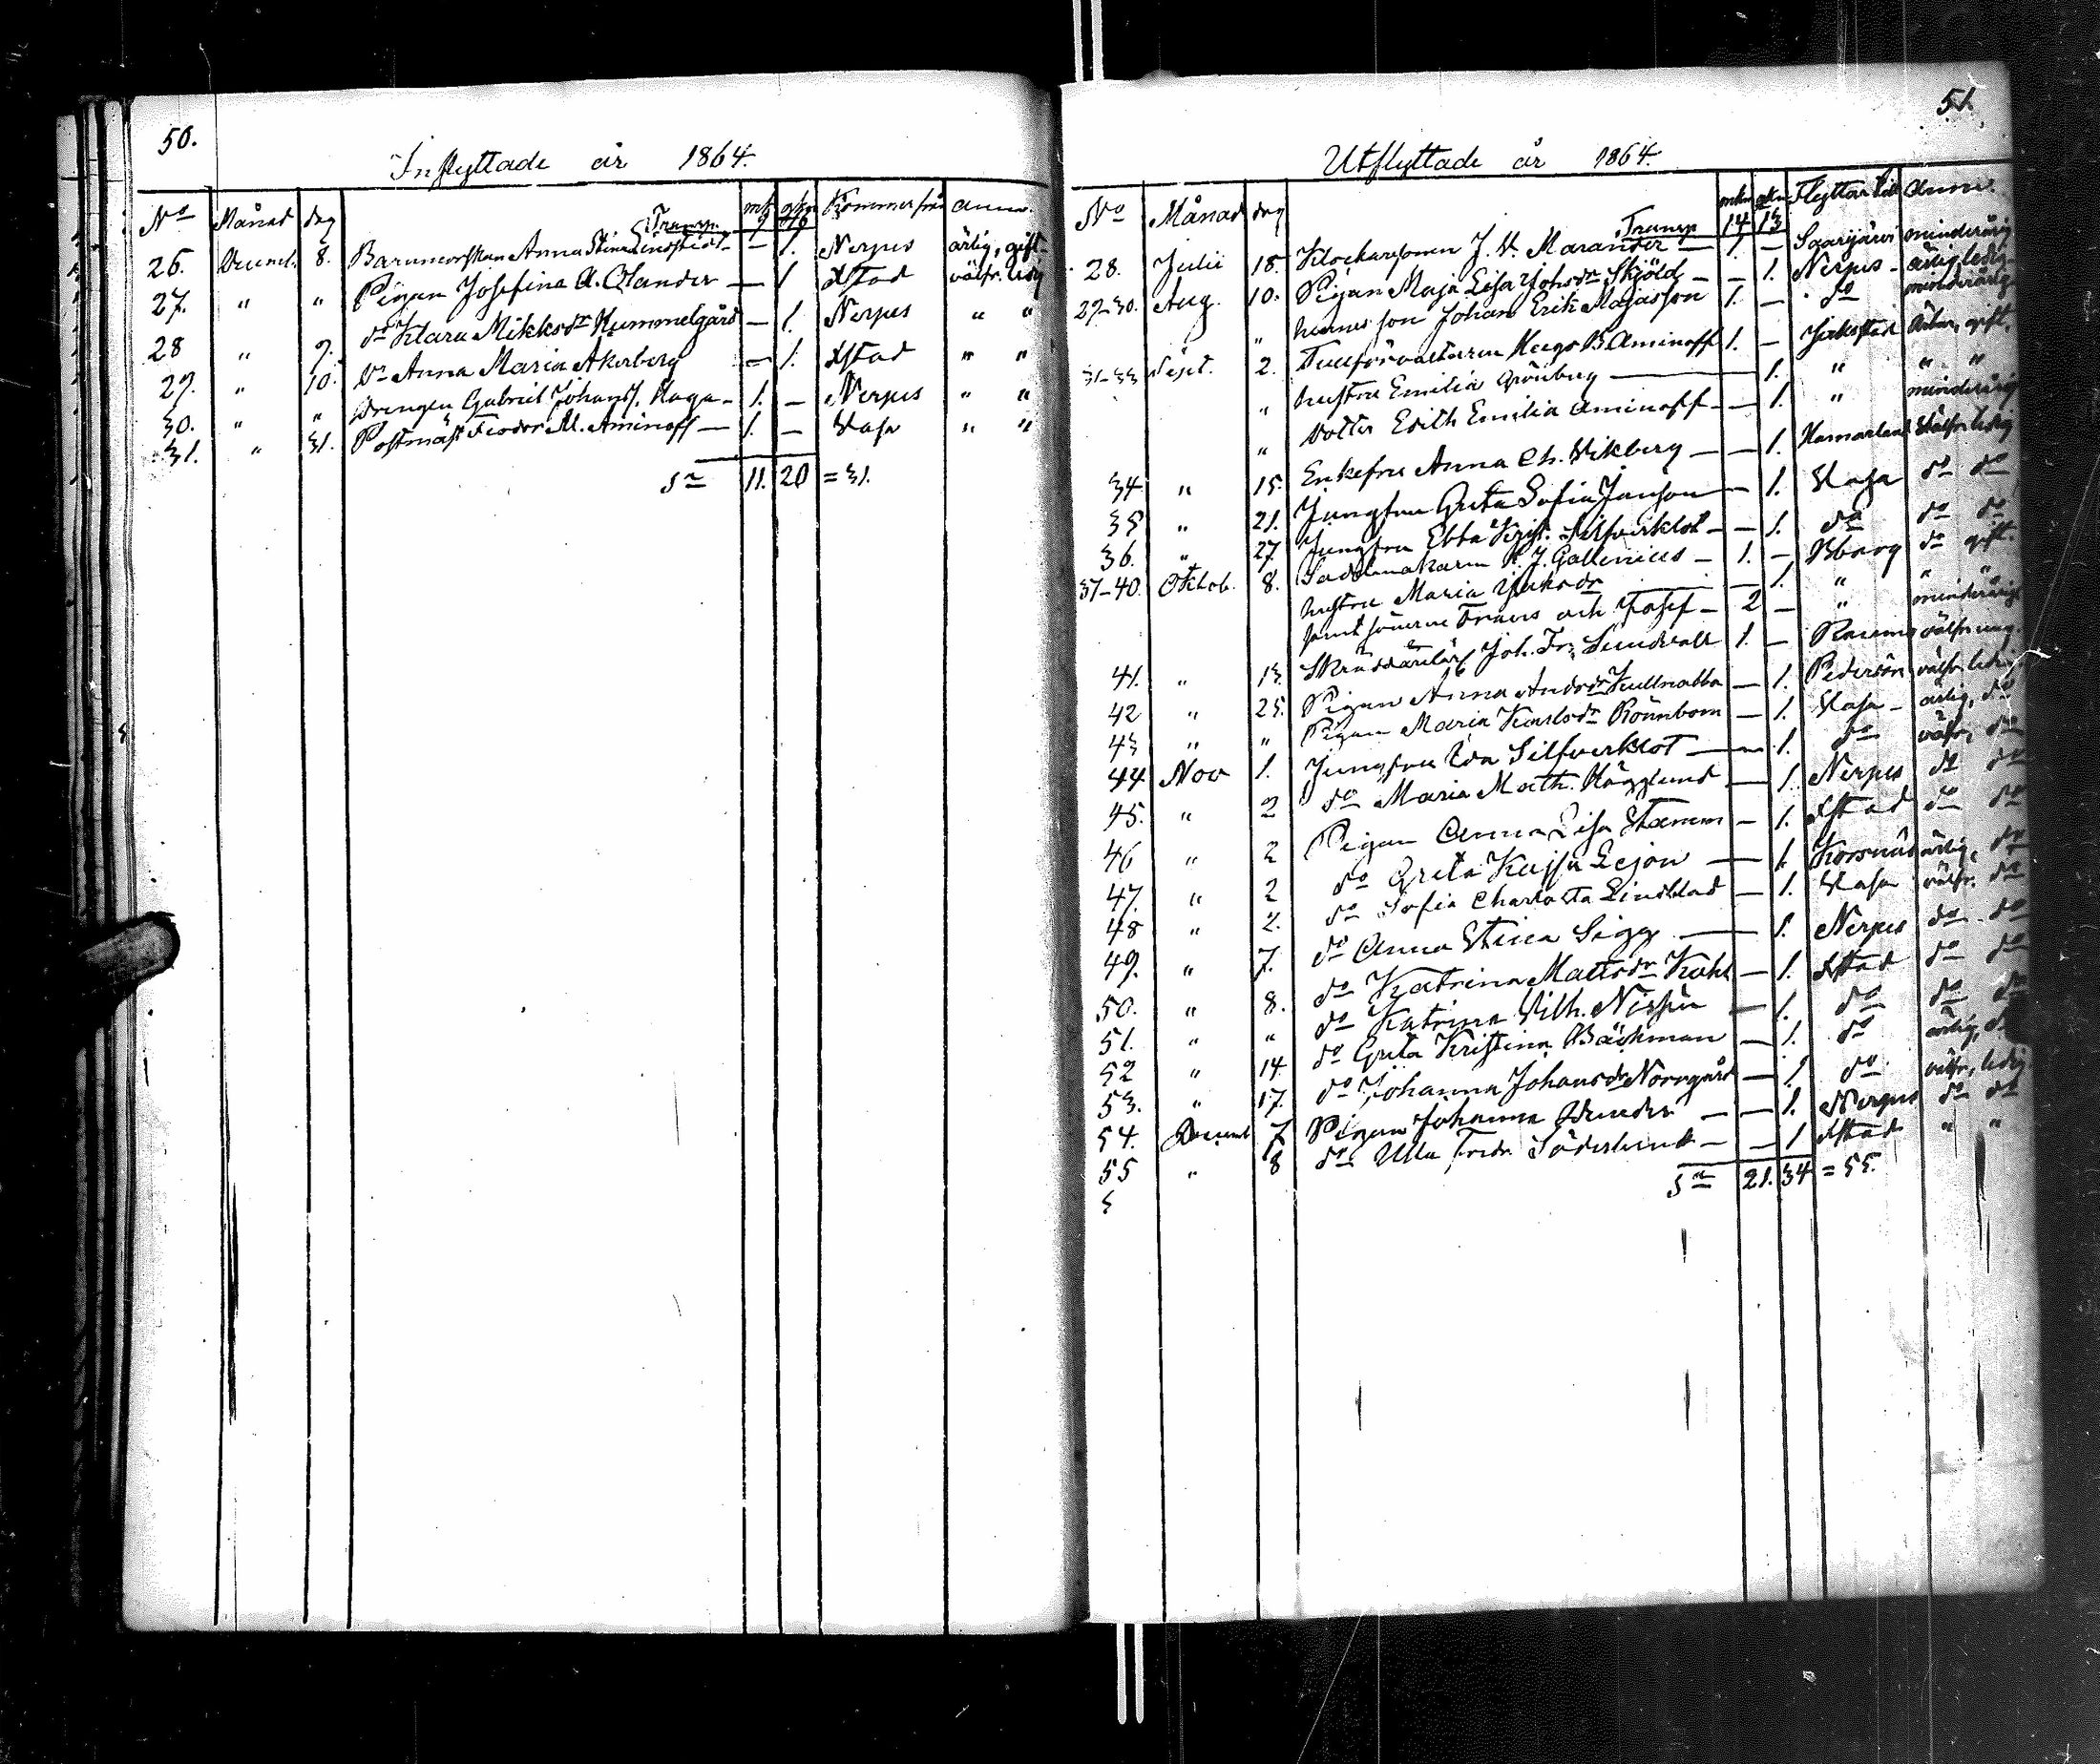 50.
Inflyttade år 1864.
No Månad dag Transp. mk qvk Kommer från anm.
9 16
26. Decemb. 8. Barnmorskan Anna Stina — 1. Nerpes ärlig, gift.
27. " " Pigan Josefina A. Olander — 1 Xstad välfr. ledig
28 " 9. do Klara Mikksdr Hummelgård — 1. Nerpes " "
29. " 10. do Anna Maria Åkerberg — 1. Xstad " "
30. " " Drengen Gabriel Johans. Haga — 1. — Nerpes " "
31. " 31. Postmäst. Feodor M. Aminoff — 1. — Vasa " "
Sa 11. 20 = 31.
51.
Utflyttade år 1864.
No Månad dag Transp mkn qvkn Flyttar till Anm.
14 13
28. Julii 18. Klockaresonen J. V. Marander — 1 — Saarijärvi minderårig
29-30. Aug. 10. Pigan Maja Lisa Johsdr Skjöld — — 1. Nerpes ärlig ledig
" hennes son Johan Erik Majasson 1. — do minderårig
31-33 Sept. 2. Tullförvaltaren Hugo B. Aminoff 1. — Jakobstad gift.
" hustru Emilia Grönberg — 1. " " "
" dotter Edith Emilia Aminoff — — 1. " minderårig
34 " 15. Enkefru Anna Ch. Vikberg — — 1. Hamarland välfr. ledig
35 " 21. Jungfru Greta Sofia Janson — 1. Vasa do do
36. " 27. Jungfru Ebba Krist. Silfverklot — — 1. do do do
37-40. Oktob. 8. Sadelmakaren K. J. Gallenius — 1. — Bborg do gift.
hustru Maria Jaksdr — 1. " " "
samt sönerne Frans och Josef — 2 — " minderårige
41. " 13. Skräddarelärl. Joh. Fr. Sundvall 1. — Raumo välfr ung
42 " 25. Pigan Anna Andsdr Kullnabba — 1. Pedersöre välfr. ledig
43 " " Pigan Maria Karlsdr Rönnbom — 1. Vasa — ärlig, do
44 Nov 1. Jungfru Eva Silfverklot — 1. do välfr, do
45. " 2 do Maria Math. Hägglund — 1. Nerpes do do
46 " 2 Pigan Anna Lisa Stamm — 1. Xstad do do
47. " 2 do Greta Kajsa Lejon — 1. Korsnäs ärlig, do
48 " 2. do Sofia Charlotta Lindblad — 1. Vasa välfr. do
49. " 7. do Anna Stina Sigg — 1. Nerpes do do
50. " 8. do Katrina Mattsdr — 1. Xstad do do
51. " " do Katrina Vilh. — 1. do do do
52 " 14. do Greta Kristina Bäckman — 1. do ärlig, do
53. " 17. do Johanna Johansdr Norrgård — 1 do välfr, ledig
54. Decemb 7 Pigan Johanna — — 1. Nerpes do do
55 " 8 do Ulla Fredr. Söderlund — — 1 Xstad " "
Sa 21. 34 = 55.